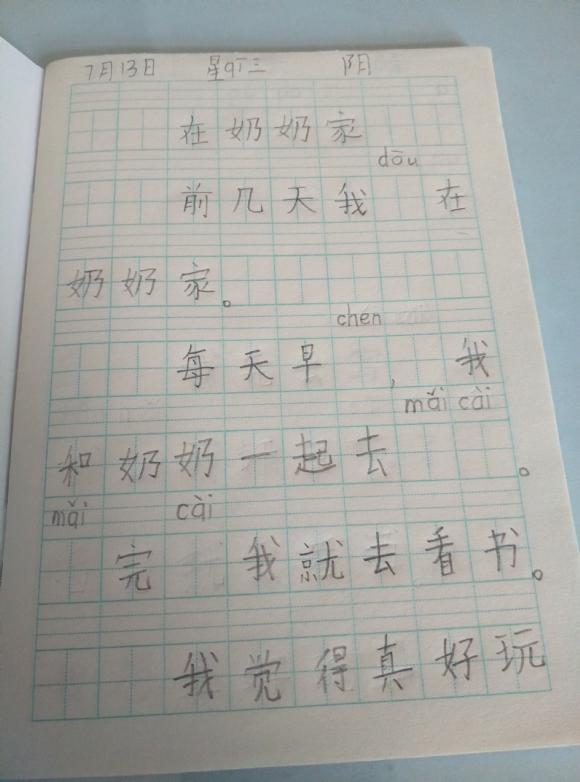 7月13日 星qī三 阴
在奶奶家
前几天我dōu在
奶奶家。
每天早chen，我
和奶奶一起去mǎi cài。
mǎi完cài我就去看书。
我觉得真好玩